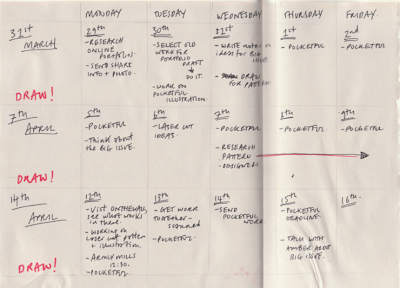 MONDAY TUESDAY WEDNESDAY THURSDAY FRIDAY
31st
MARCH
DRAW!
29th
-RESEARCH
ONLINE
PORTFOLIOS.
-SEND SHARE
INFO + PHOTO.
30th
-SELECT OLD
WORK FOR
PORTFOLIO
DRAFT
→ DO IT.
-WORK ON
POCKETFUL
ILLUSTRATION.
31st
-WRITE NOTES ON
IDEAS FOR BIG
ISSUE.
DRAW
FOR PATTERN.
1st
-POCKETFUL
2nd
-POCKETFUL
7th
APRIL
DRAW!
5th
-POCKETFUL
-Think about
the BIG ISSUE.
6th
-LASER CUT
IDEAS.
7th
-POCKETFUL
-RESEARCH
PATTERN
DESIGNERS
8th
-POCKETFUL
9th
-POCKETFUL
14th
APRIL
DRAW!
12th
-VISIT ONTHEWALL,
see what works
in there.
-Working on
laser cut pattern
+ illustration.
-ARMLY MILLS
12:30.
-POCKETFUL
13th
-GET WORK
TOGETHER
-scanned
-POCKETFUL
14th
-SEND
POCKETFUL
WORK
15th
-POCKETFUL
DEADLINE.
-TALK WITH
AMBER ABOUT
BIG ISSUE.
16th